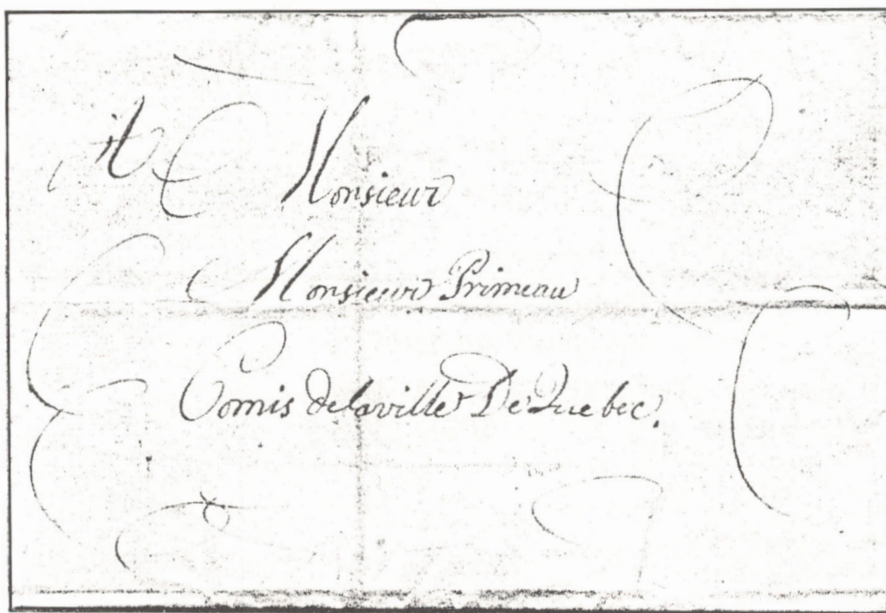 A Monsieur
Monsieur Primeau
Comis delaville De Quebec.